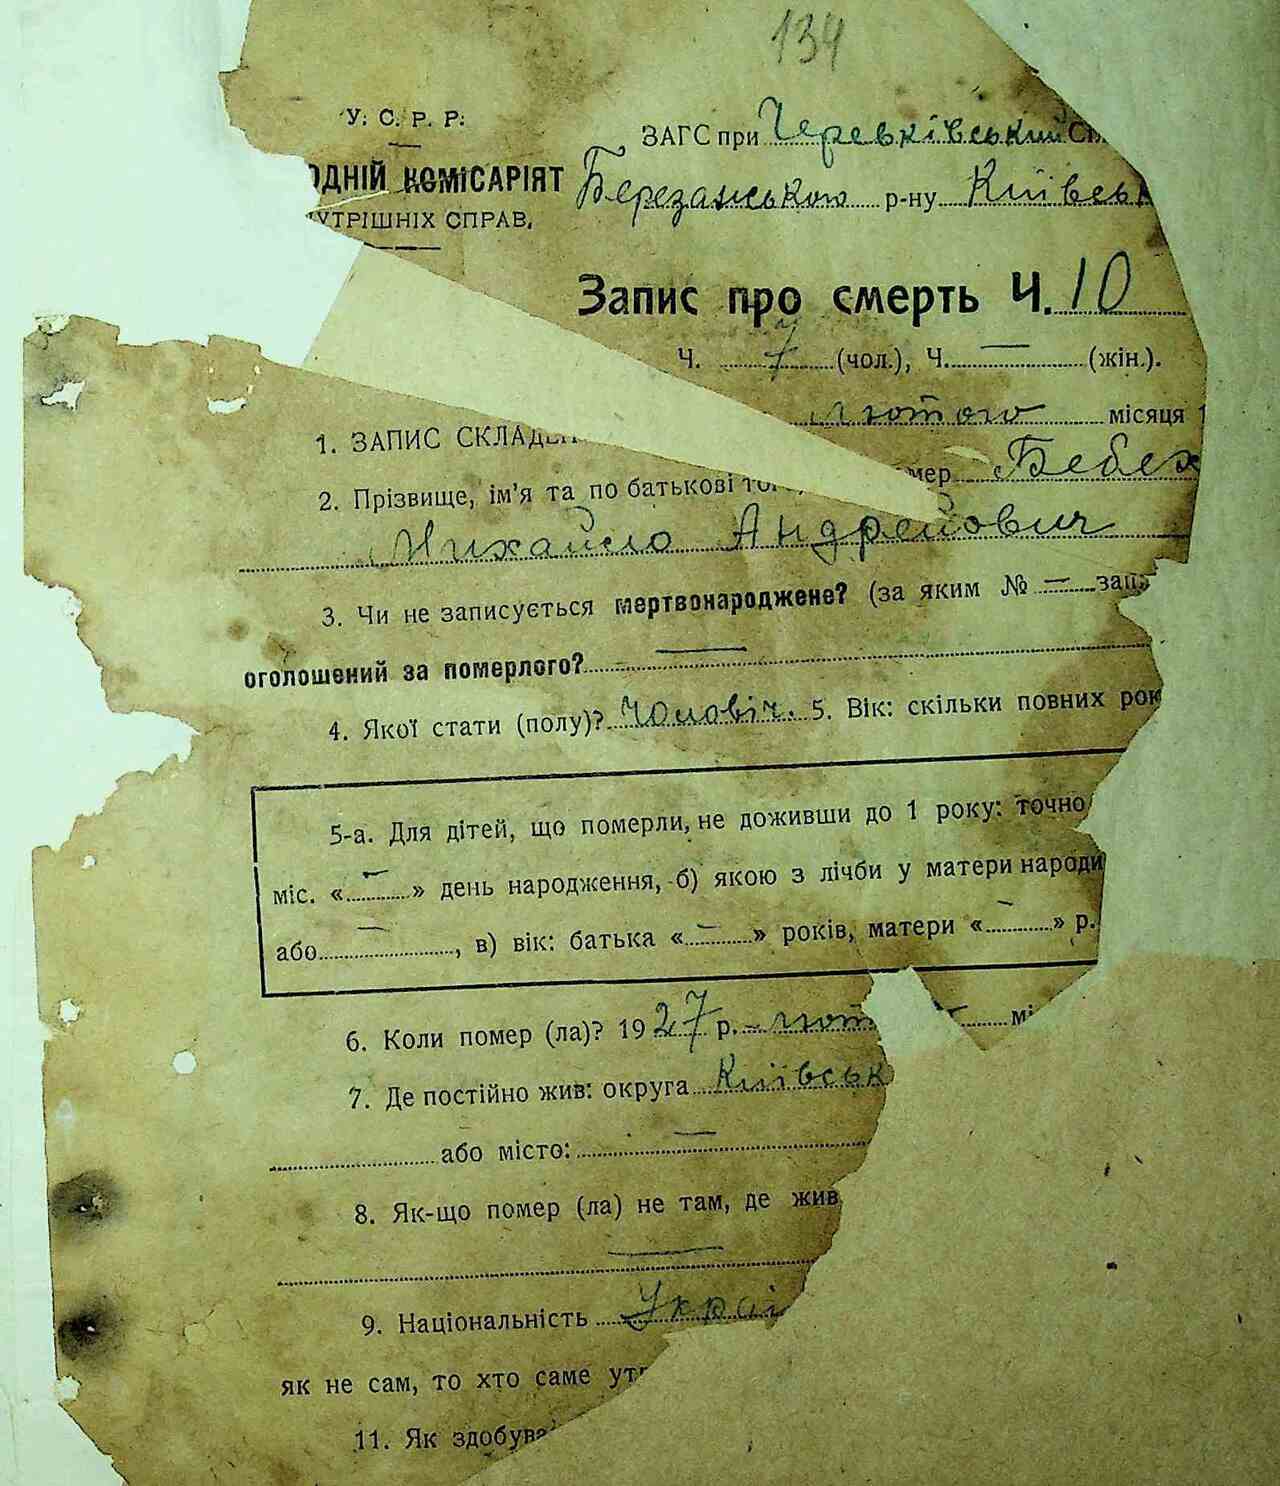 134
У. С. Р. Р.
ОДНІЙ КОМІСАРІЯТ
УТРІШНІХ СПРАВ.
ЗАГС при Черевківський
Березанського р-ну Київськ
Запис про смерть Ч. 10
Ч. 7 (чол.), Ч. — (жін.).
1. ЗАПИС СКЛАДЕН лютого місяця 1
2. Прізвище, ім'я та по батькові мер Бебех
Михайло Андрейович
3. Чи не записується мертвонароджене? (за яким № — зап
оголошений за померлого? —
4. Якої стати (полу)? Чоловіч. 5. Вік: скільки повних рок
5-а. Для дітей, що померли, не доживши до 1 року: точно
міс. «—» день народження, б) якою з лічби у матери народи
або —, в) вік: батька «—» років, матери «—» р.
6. Коли помер (ла)? 1927 р. лют мі
7. Де постійно жив: округа Київськ
або місто: —
8. Як-що помер (ла) не там, де жив
—
9. Національність Украї
як не сам, то хто саме ут
11. Як здобува